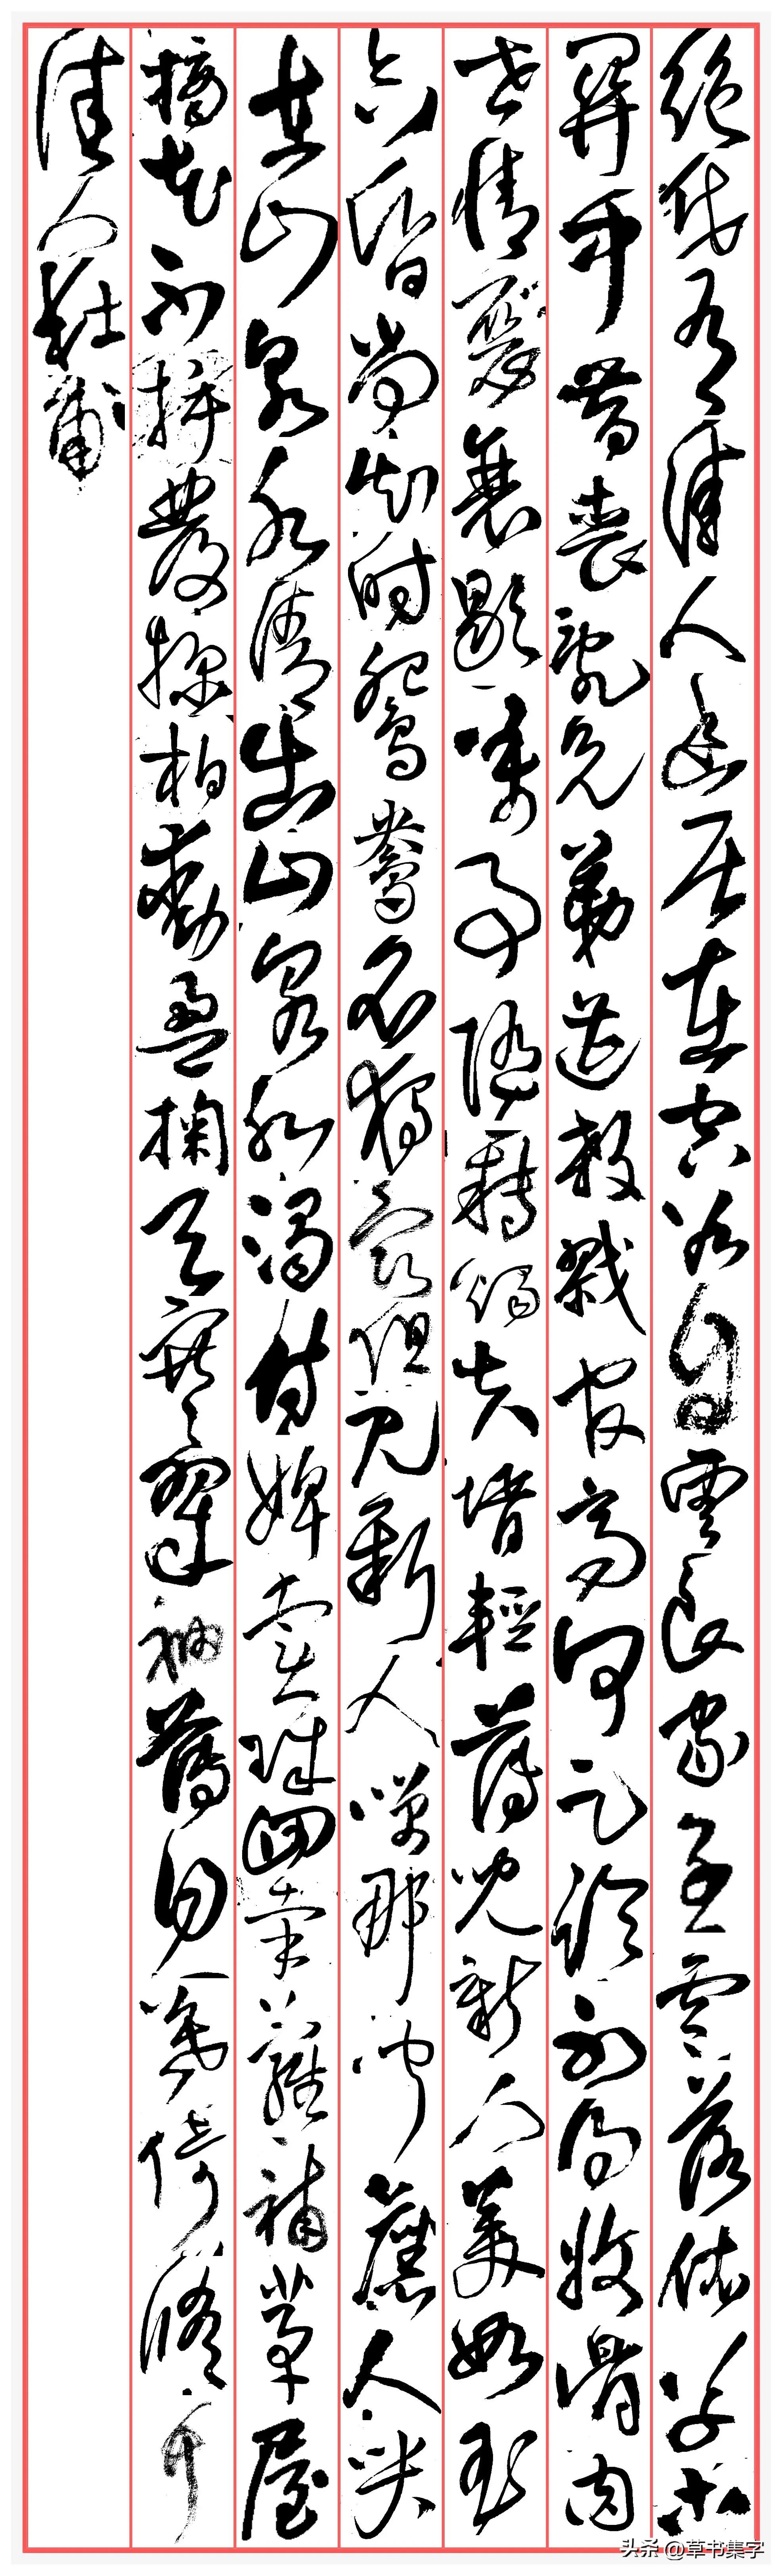 絕代有佳人幽居在空谷自雲良家子零落依草木
關中昔喪亂兄弟遭殺戮官高何足論不得收骨肉
世情惡衰歇萬事隨轉燭夫壻輕薄兒新人美如玉
合昏尚知時鴛鴦不獨宿但見新人笑那聞舊人哭
在山泉水清出山泉水濁侍婢賣珠迴牽蘿補茅屋
摘花不插髮採柏動盈掬天寒翠袖薄日暮倚修竹
佳人杜甫
头条 @草书集字